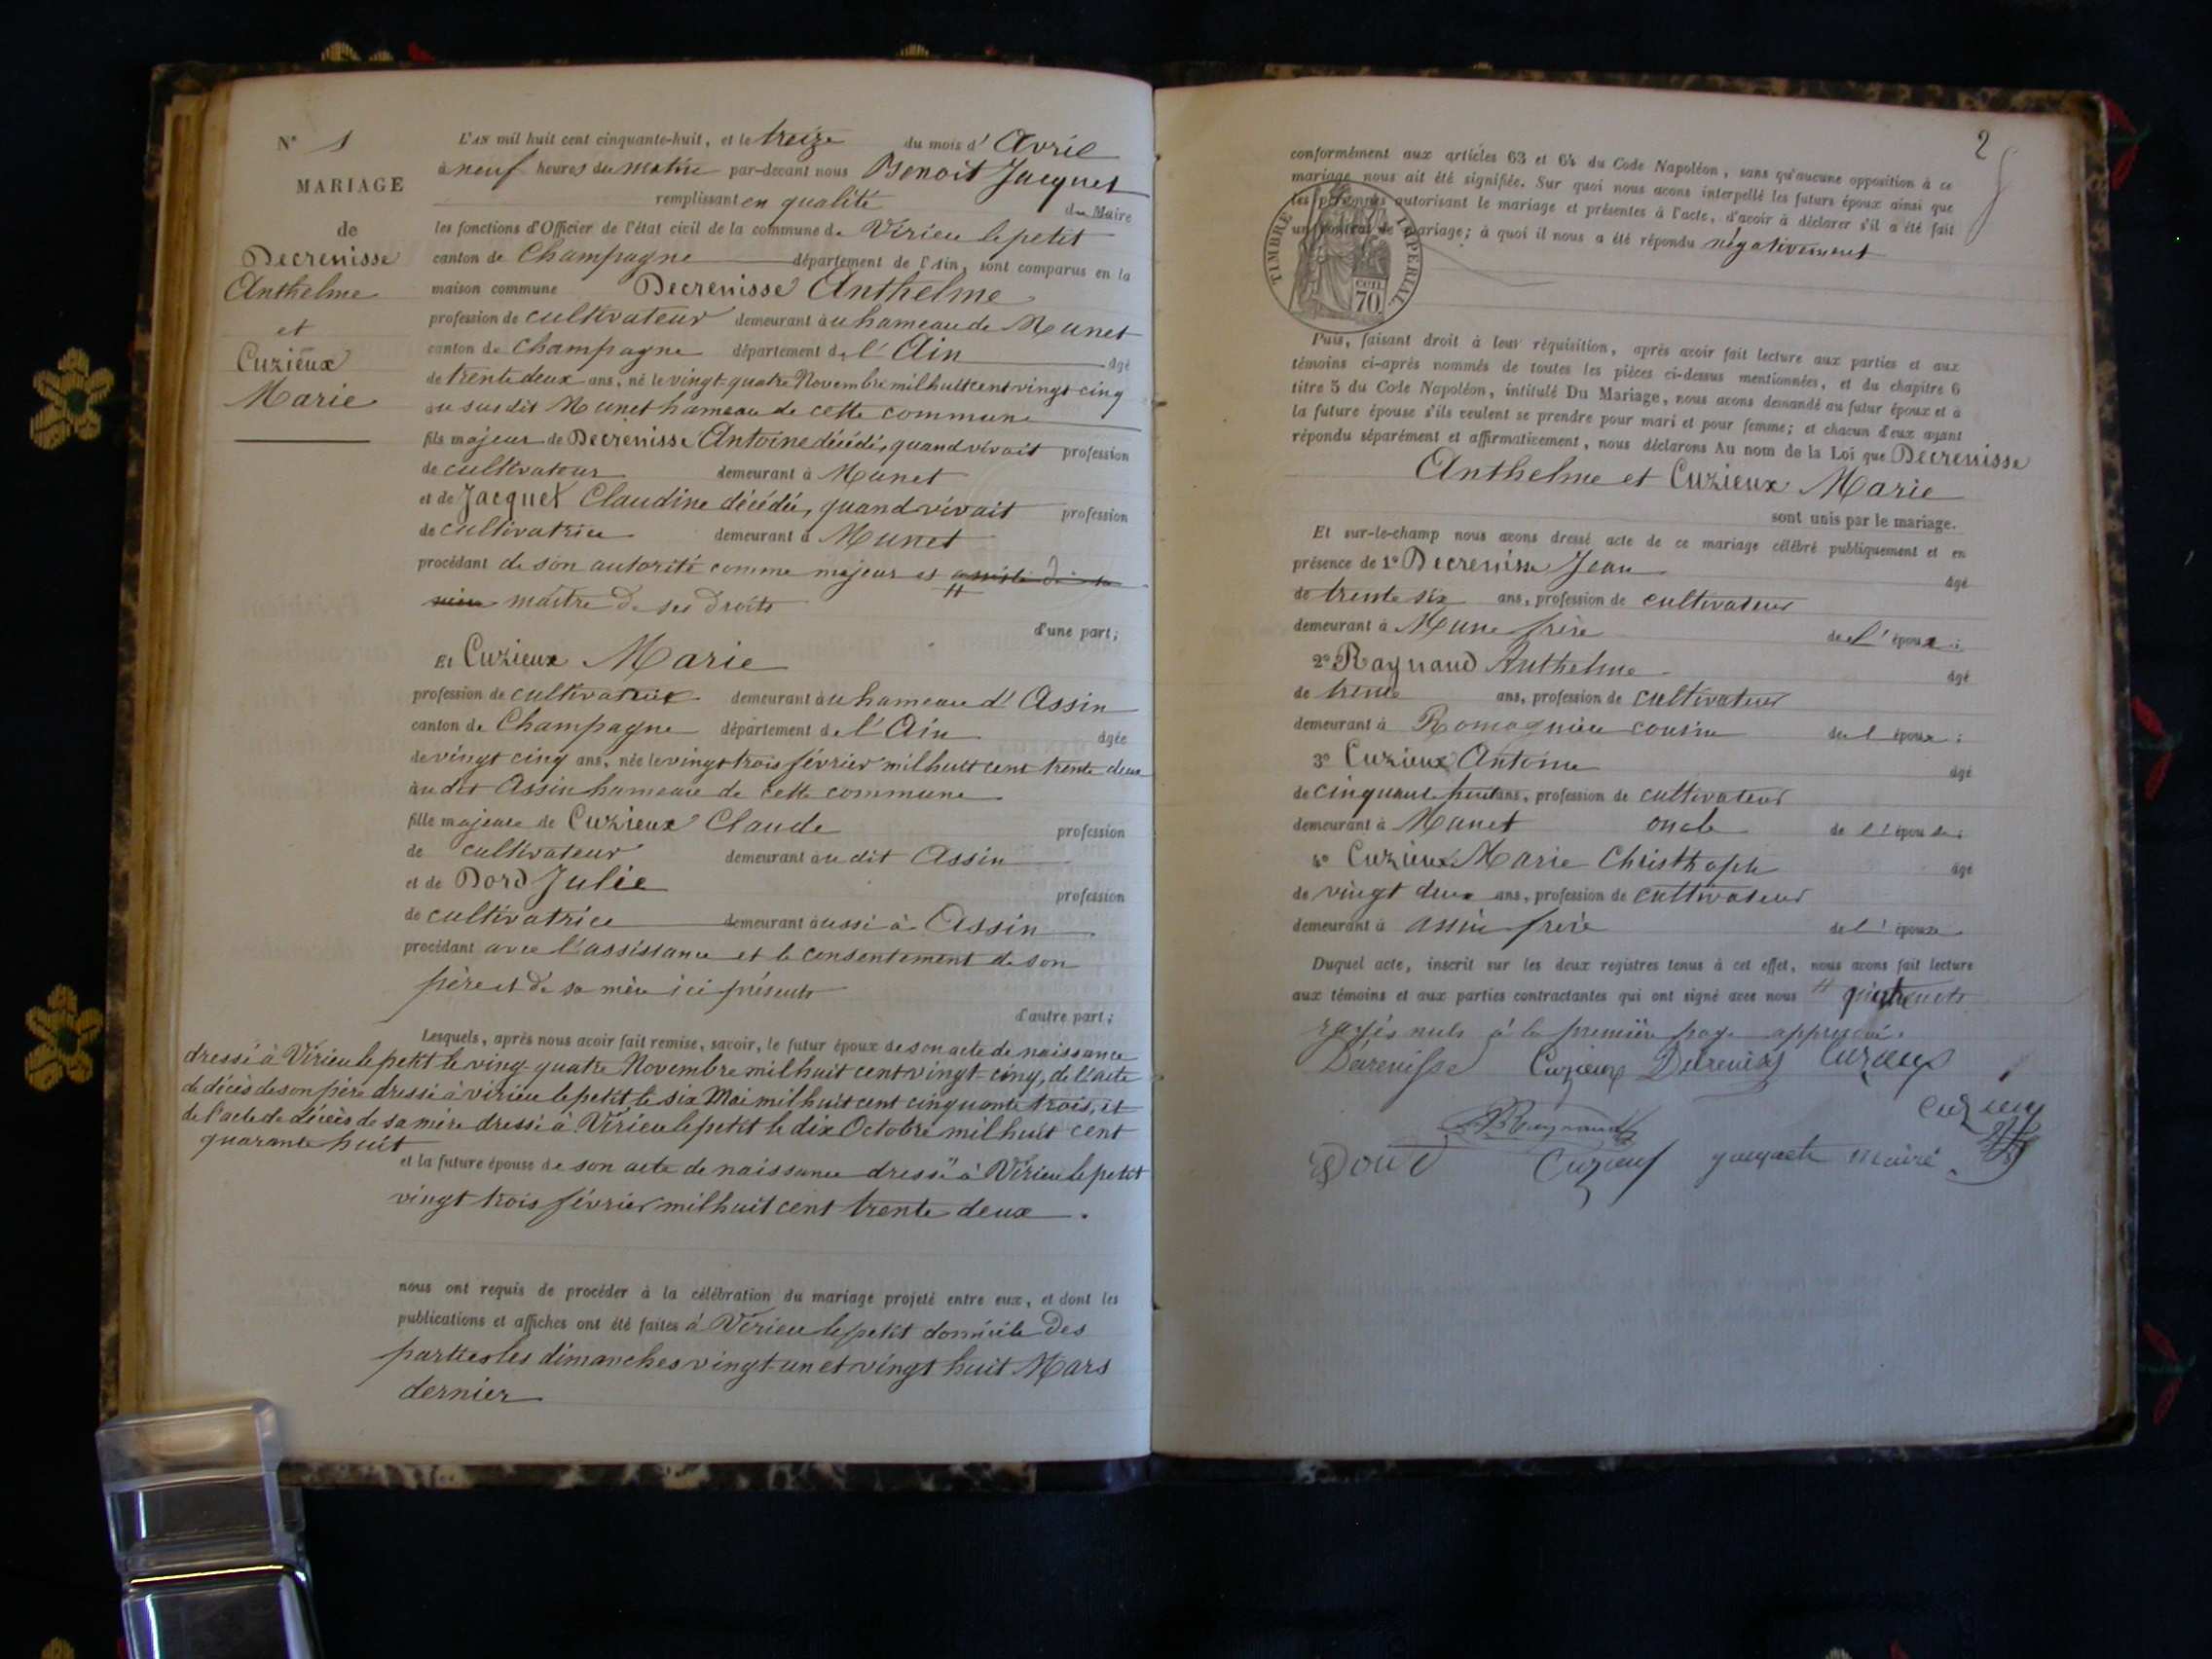 N° 1
MARIAGE
de
Decrenisse
Anthelme
et
Cuzieux
Marie
L'AN mil huit cent cinquante-huit, et le treize du mois d' Avril
à neuf heures du matin par-devant nous Benoit Jacquet
remplissant en qualité du Maire
les fonctions d'Officier de l'état civil de la commune de Virieu le petit
canton de Champagne département de l'Ain, sont comparus en la
maison commune Decrenisse Anthelme
profession de cultivateur demeurant au hameau de Munet
canton de Champagne département de l' Ain âgé
de trente deux ans, né le vingt-quatre Novembre mil huit cent vingt-cinq
au susdit Munet hameau de cette commune
fils majeur de Decrenisse Antoine décédé, quand vivait profession
de cultivateur demeurant à Munet
et de Jacquet Claudine décédée, quand vivait profession
de cultivatrice demeurant à Munet
procédant de son autorité comme majeur et assisté de sa
mère maitre de ses droits
d'une part;
Et Cuzieux Marie
profession de cultivatrice demeurant au hameau d' Assin
canton de Champagne département de l' Ain âgée
de vingt cinq ans, née le vingt trois février mil huit cent trente deux
au dit Assin hameau de cette commune
fille majeure de Cuzieux Claude profession
de cultivateur demeurant au dit Assin
et de Dord Julie profession
de cultivatrice demeurant aussi à Assin
procédant avec l'assistance et le consentement de son
père et de sa mère ici présents
d'autre part;
Lesquels, après nous avoir fait remise, savoir, le futur époux de son acte de naissance
dressé à Virieu le petit le ving-quatre Novembre mil huit cent vingt-cinq, de l'acte
de décès de son père dressé à virieu le petit le six Mai mil huit cent cinquante trois, et
de l'acte de décès de sa mère dressé à Virieu le petit le dix Octobre mil huit cent
quarante huit
et la future épouse de son acte de naissance dressé à Virieu le petit
vingt trois février mil huit cent trente deux.
nous ont requis de procéder à la célébration du mariage projeté entre eux, et dont les
publications et affiches ont été faites à Virieu le petit domicile des
parties les dimanches vingt-un et vingt huit Mars
dernier
2
conformément aux articles 63 et 64 du Code Napoléon, sans qu'aucune opposition à ce
mariage nous ait été signifiée. Sur quoi nous avons interpellé les futurs époux ainsi que
les personnes autorisant le mariage et présentes à l'acte, d'avoir à déclarer s'il a été fait
un contrat de mariage; à quoi il nous a été répondu négativement
TIMBRE IMPERIAL
CEN.
70
Puis, faisant droit à leur réquisition, après avoir fait lecture aux parties et aux
témoins ci-après nommés de toutes les pièces ci-dessus mentionnées, et du chapitre 6
titre 5 du Code Napoléon, intitulé Du Mariage, nous avons demandé au futur époux et à
la future épouse s'ils veulent se prendre pour mari et pour femme; et chacun d'eux ayant
répondu séparément et affirmativement, nous déclarons Au nom de la Loi que Decrenisse
Anthelme et Cuzieux Marie
sont unis par le mariage.
Et sur-le-champ nous avons dressé acte de ce mariage célébré publiquement et en
présence de 1° Decrenisse Jean âgé
de trente six ans, profession de cultivateur
demeurant à Mune frère de l' époux;
2° Raynaud Anthelme âgé
de trente ans, profession de cultivateur
demeurant à Romagnieu cousin de l époux;
3° Cuzieux Antoine âgé
de cinquante huit ans, profession de cultivateur
demeurant à Munet oncle de l'épouse;
4° Cuzieux Marie Christhophe âgé
de vingt deux ans, profession de cultivateur
demeurant à assin frère de l' épouse
Duquel acte, inscrit sur les deux registres tenus à cet effet, nous avons fait lecture
aux témoins et aux parties contractantes qui ont signé avec nous quatre mots
rayés nuls à la première page approuvé.
Decrenisse Cuzieux Decrenisse Cuzieux
Cuzieux
Raynaud
Dord Cuzieux maire